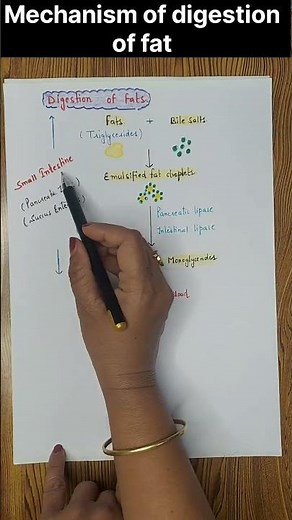 Mechanism of digestion
of fat
Digestion of Fats.
Fats + Bile Salts
(Triglycerides)
Small Intestine
Emulsified fat droplets
(Pancreatic
(Succus
Pancreatic lipase
Intestinal lipase
Monoglycerides